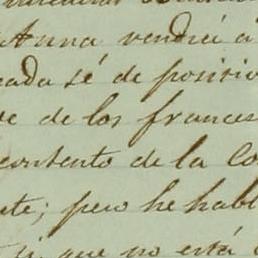 Anna vendrá á
cada sé de positivo
de los frances
contento de la Co
te; pero he habl
que no está